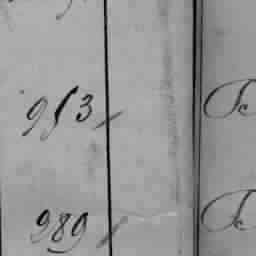 953
989